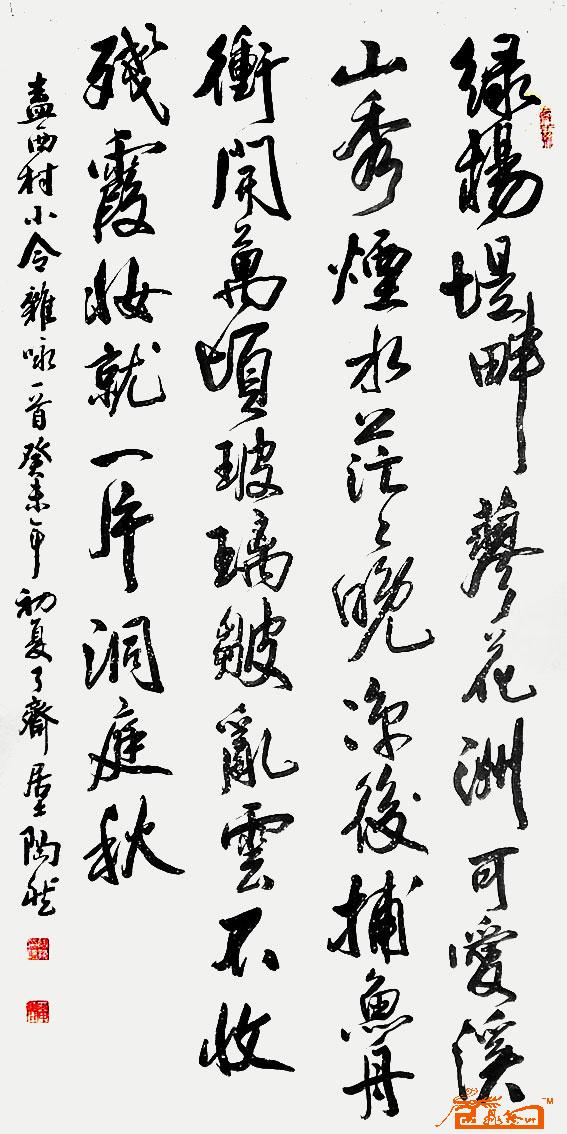 綠楊堤畔蓼花洲可愛溪
山秀煙水茫々晚涼後捕魚舟
衝開萬頃玻璃皺亂雲不收
殘霞妝就一片洞庭秋
盍西村小令雜咏一首癸未年初夏了齋居士陶然